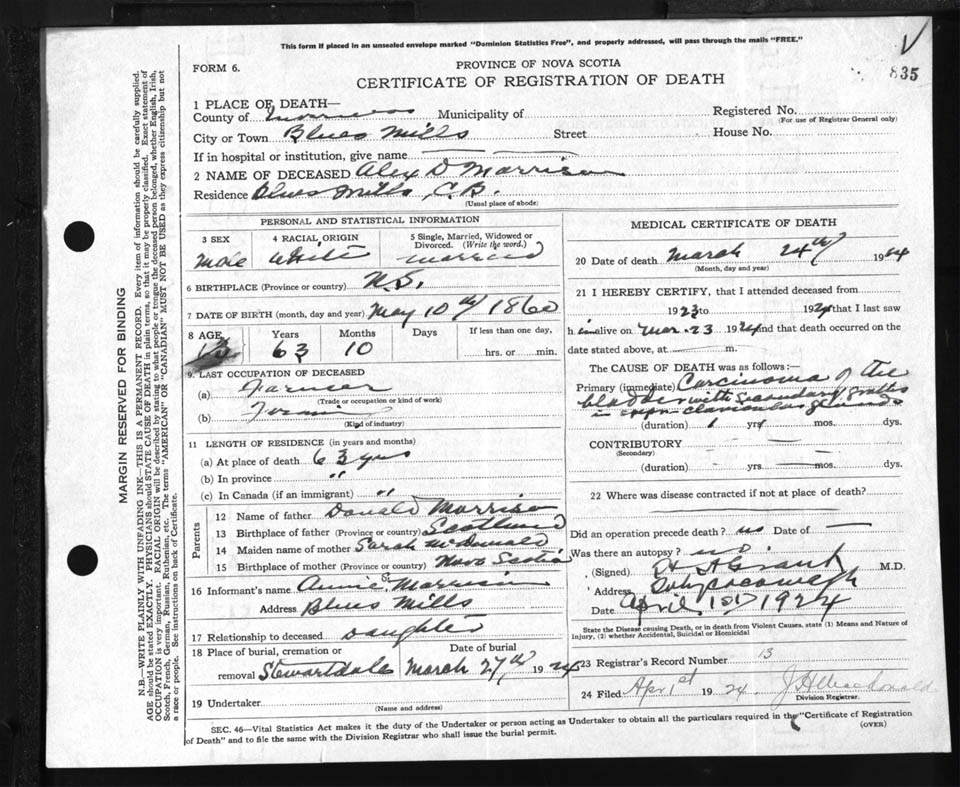 This form if placed in an unsealed envelope marked "Dominion Statistics Free", and properly addressed, will pass through the mails "FREE."
V
835
FORM 6.
PROVINCE OF NOVA SCOTIA
CERTIFICATE OF REGISTRATION OF DEATH
1 PLACE OF DEATH—
County of Inverness Municipality of Registered No.
(For use of Registrar General only)
City or Town Blues Mills Street House No.
If in hospital or institution, give name
2 NAME OF DECEASED Alex D Morrison
Residence Blues Mills, C.B.
(Usual place of abode)
PERSONAL AND STATISTICAL INFORMATION
3 SEX 4 RACIAL ORIGIN 5 Single, Married, Widowed or Divorced. (Write the word.)
Male White Married
6 BIRTHPLACE (Province or country) N.S.
7 DATE OF BIRTH (month, day and year) May 10th 1860
8 AGE Years Months Days If less than one day,
63 10 hrs. or min.
9. LAST OCCUPATION OF DECEASED
(a) Farmer
(Trade or occupation or kind of work)
(b)
(Kind of industry)
11 LENGTH OF RESIDENCE (in years and months)
(a) At place of death 63 yrs
(b) In province "
(c) In Canada (if an immigrant) "
Parents
12 Name of father Donald Morrison
13 Birthplace of father (Province or country) Scotland
14 Maiden name of mother Sarah McDonald
15 Birthplace of mother (Province or country) Nova Scotia
16 Informant's name Annie Morrison
Address Blues Mills
17 Relationship to deceased Daughter
18 Place of burial, cremation or removal Date of burial
Stewartdale March 27th 1924
19 Undertaker
(Name and address)
MEDICAL CERTIFICATE OF DEATH
20 Date of death March 24th 1924
(Month, day and year)
21 I HEREBY CERTIFY, that I attended deceased from
1923 to 1924 that I last saw
h im alive on Mar. 23 1924 and that death occurred on
date stated above, at m.
The CAUSE OF DEATH was as follows:—
Primary (immediate) Carcinoma of the
bladder with secondary growths
in clavicular glands
(duration) 1 yrs mos. dys.
CONTRIBUTORY
(Secondary)
(duration) yrs. mos. dys.
22 Where was disease contracted if not at place of death?
Did an operation precede death? no Date of
Was there an autopsy? no
(Signed) H A Grant M.D.
Address
Date April 1st 1924
State the Disease causing Death, or in death from Violent Causes, state (1) Means and Nature of
Injury, (2) whether Accidental, Suicidal or Homicidal
23 Registrar's Record Number 13
24 Filed Apr 1st 1924 J H MacDonald
Division Registrar.
SEC. 46—Vital Statistics Act makes it the duty of the Undertaker or person acting as Undertaker to obtain all the particulars required in the "Certificate of Registration
of Death" and to file the same with the Division Registrar who shall issue the burial permit.
(OVER)
MARGIN RESERVED FOR BINDING
N.B.—WRITE PLAINLY WITH UNFADING INK—THIS IS A PERMANENT RECORD. Every item of information should be carefully supplied.
AGE should be stated EXACTLY. PHYSICIANS should STATE CAUSE OF DEATH in plain terms, so that it may be properly classified. Exact statement of
OCCUPATION is very important. RACIAL ORIGIN will be described by stating to what people or tongue the deceased person belonged, whether English, Irish,
Scotch, French, German, Russian, Ruthenian, etc. The terms "AMERICAN" OR "CANADIAN" MUST NOT BE USED as they express citizenship but not
a race or people. See instructions on back of Certificate.